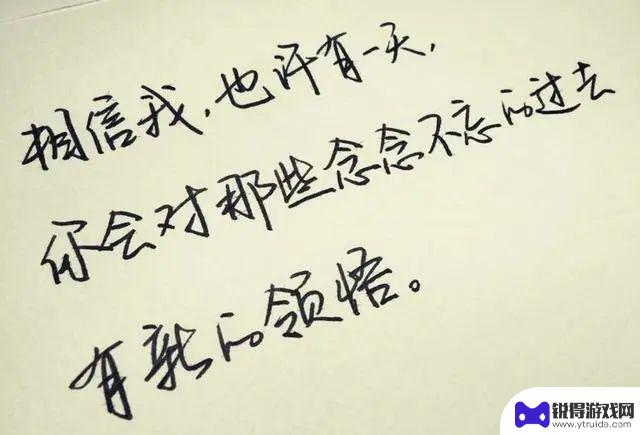 相信我，也许有一天，
你会对那些念念不忘的过去
有新的领悟。
锐得游戏网
www.ytruida.com